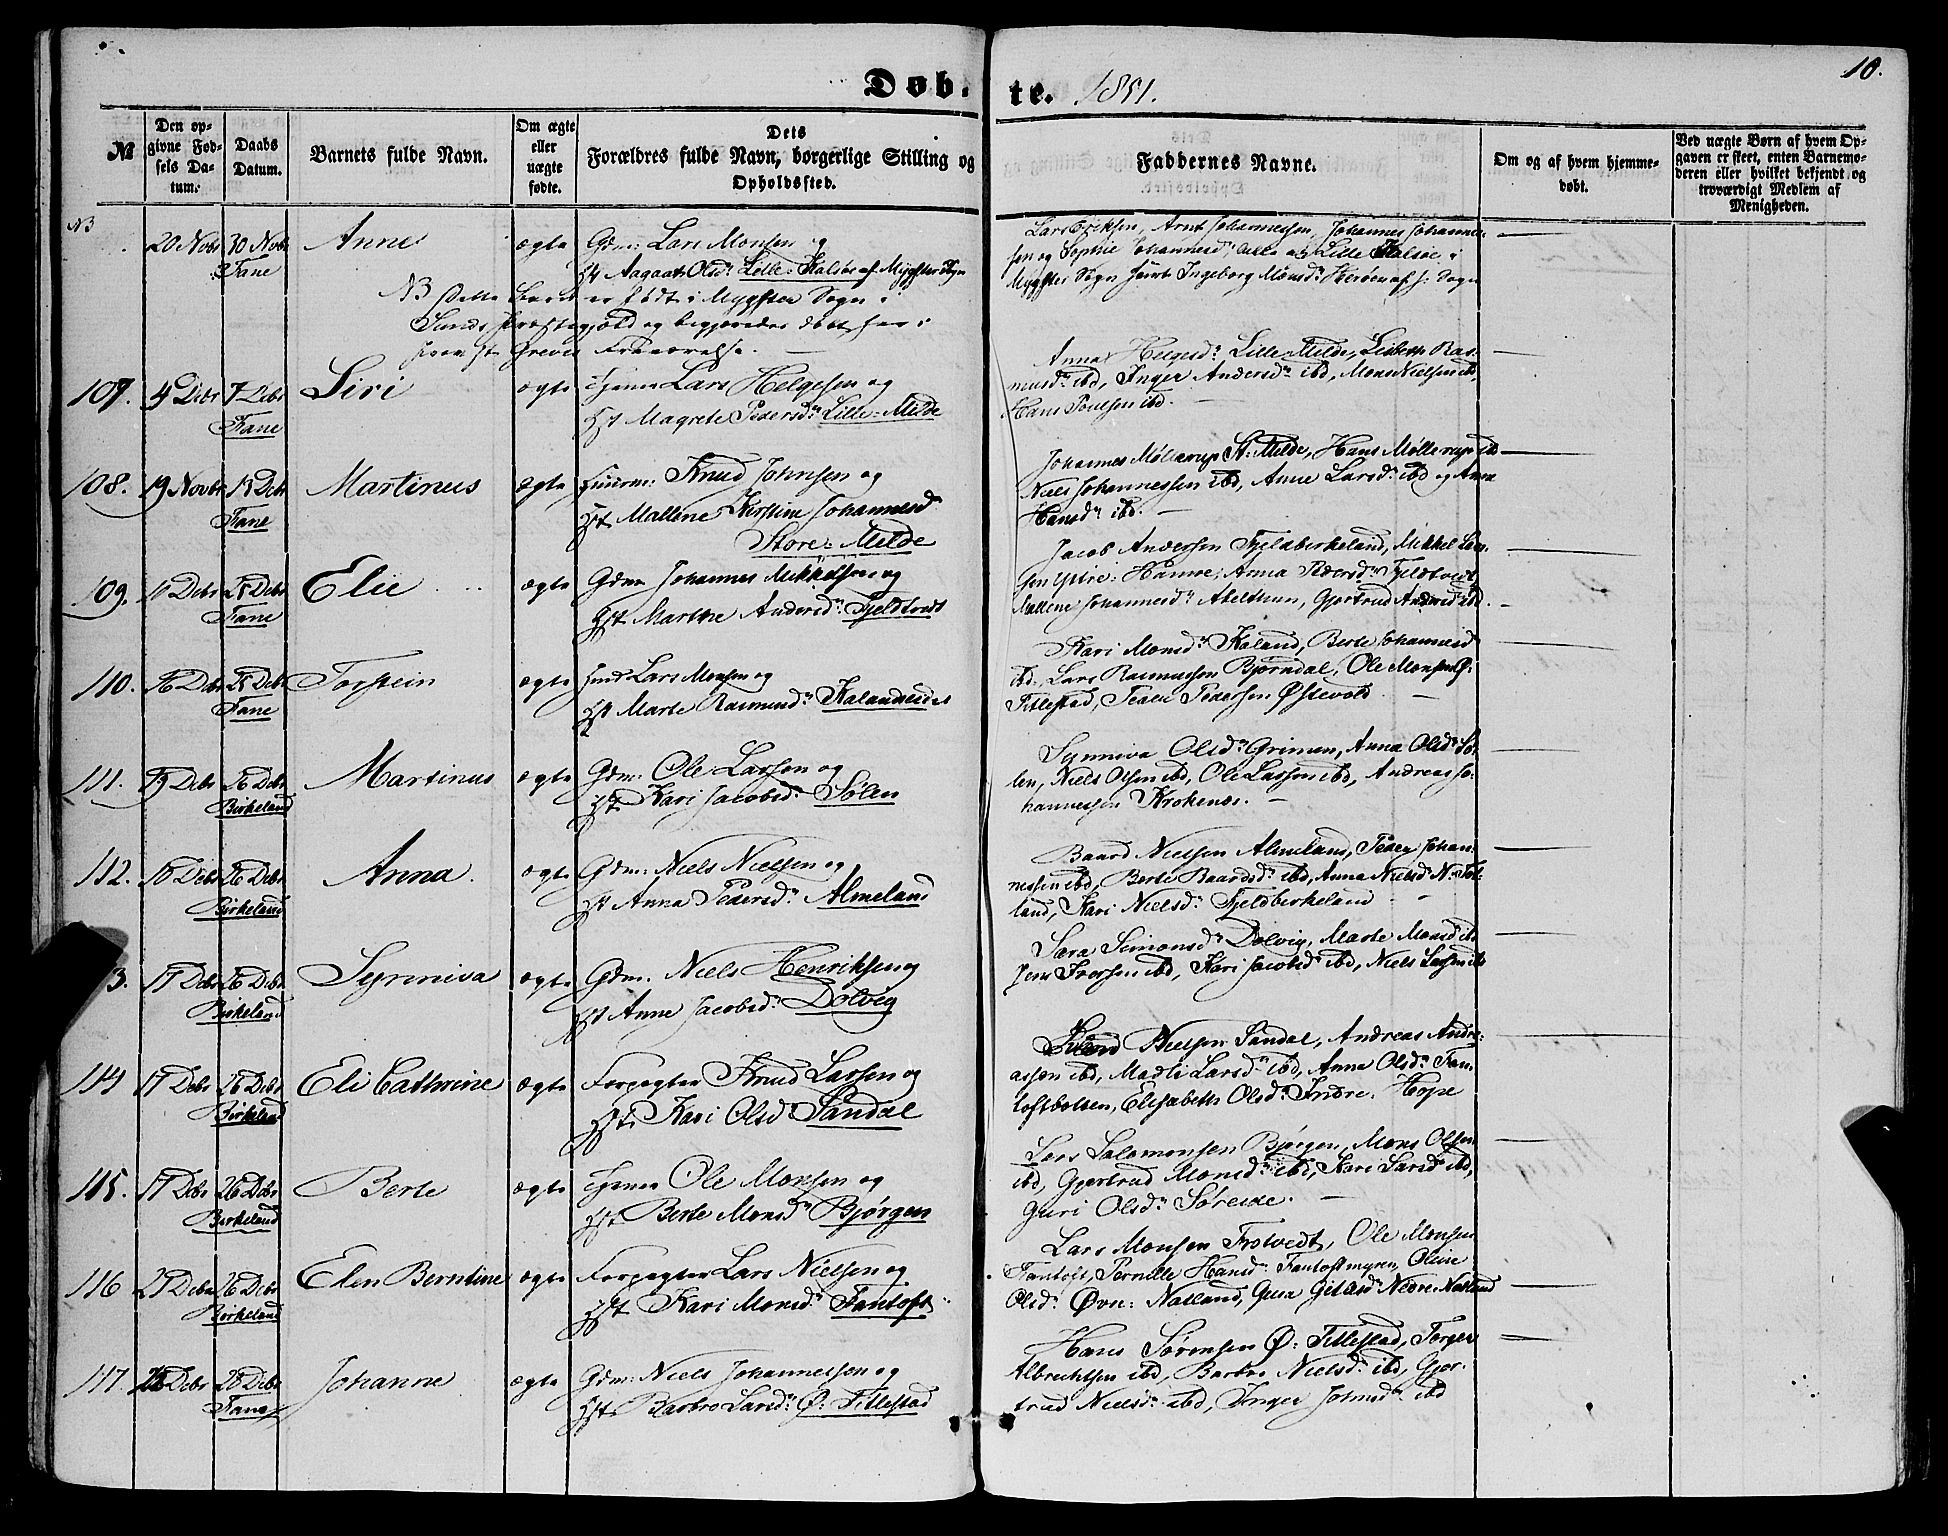 10.
Døbte. 1851.
№
Den opgivne Fødsels Datum.
Daabs Datum.
Barnets fulde Navn.
Om ægte eller uægte fødte.
Dets Forældres fulde Navn, borgerlige Stilling og Opholdssted.
Faddernes Navne.
Om og af hvem hjemmedøbt.
Ved uægte Børn af hvem Opgaven er skeet, enten Barnemoderen eller hvilket bekjendt og troværdigt Medlem af Menigheden.
NB
20 Novbr 30 Novbr Anne ægte Gdm: Lars Monsen og
Fane Hst Aagaate Olsd: Lille-Kalsøe af Mygster Sogn
NB Dette Barn er født i Mygster Sogn i
Sunds Præstegjæld og begjæredes døbt her i
Lars Eriksen, Arnt Johannessen, Johannes Johannes-
sen og Sophie Johannesd: alle af Lille Kalsøe i
Mygster Sogn samt Ingeborg Monsd:
107. 4 Debr 7 Debr Siri ægte Lars Helgesen og
Fane Hst Magrete Pedersd: Lille-Milde
Anna Helgesd: Lille-Milde, Lisbeth Ras-
musd: ibd, Inger Andersd: ibd, Mons Nielsen ibd,
Hans Poulsen ibd.
108. 19 Novbr Debr Martinus ægte Knud Johnsen og
Fane Hst Mallene Kirstine Johannesd:
Store-Milde
Johannes Møllerup St: Milde, Hans Møllerup ibd
Niels Johannessen ibd, Anne Larsd: ibd og Anna
Hansd: ibd.
109. 10 Debr 25 Debr Elie ægte Gdm Johannes Mikkelsen og
Fane Hst Marthe Andersd: Fjeldtvedt
Jacob Andersen Fjeldbirkeland, Mikkel Lar-
sen Ystie-Hamre, Anna Pedersd: Fjeldtvedt,
Mallene Johannesd: Abelthun, Gjertrud Andersd: ibd.
110. 16 Debr 25 Debr Torstein ægte Lars Monsen og
Fane Hst Marte Rasmusd: Kalandseidet
Kari Monsd: Kaland, Berte Johannesd
ibd, Lars Rasmussen Bjørndal, Ole Monsen Ø:
Titlestad, Peder Pedersen Østevold.
111. 19 Debr 26 Debr Martinus ægte Gdm: Ole Larsen og
Birkeland Hst Kari Jacobsd: Sølen
Synneva Olsd: Grimen, Anna Olsd: Sø-
len, Niels Olsen ibd, Ole Larsen ibd, Andreas Jo-
hannessen Krokenæs.
112. 16 Debr 26 Debr Anna ægte Gdm: Niels Nielsen og
Birkeland Hst Anna Pedersd: Almeland
Baard Nielsen Almeland, Peder Johan-
nessen ibd, Berte Baardsd: ibd, Anna Nielsd
land, Kari Nielsd: Fjeldbirkeland
3. 17 Debr 26 Debr Synneva ægte Gdm: Niels Henriksen og
Birkeland Hst Anne Jacobsd: Dolvig
Sara Simonsd: Dolvig, Marte Monsd ibd
Jens Iversen ibd, Kari Jacobsd: ibd, Niels Larsen ibd
114 17 Debr 26 Debr Eli Cathrine ægte Forpagter Knud Larsen og
Birkeland Hst Kari Olsd: Sandal
Nielsen Sandal, Andreas Andre-
assen ibd, Madli Larsd: ibd, Anna Olsd: Fan-
toftbotten, Elisabeth Olsd: Indre: Hope
115. 17 Debr 26 Debr Berte ægte Ole Monsen og
Birkeland Hst Berte Monsd: Bjørgen
Lars Salomonsen Bjørgen, Mons Olsen
ibd, Gjertrud Monsd: ibd, Kari Larsd: ibd,
Guri Olsd: Søreide.
116 21 Debr 26 Debr Elen Berntine ægte Forpagter Lars Nielsen og
Birkeland Hst Kari Monsd: Fantoft
Lars Monsen Trotvedt, Ole Monsen
Fantoft, Pernille Hansd: Fantoftmyren, Oline
Olsd: Øvre: Natland, Nedre Natland
117. 25 Debr 28 Debr Johanne ægte Gdm: Niels Johannessen og
Fane Hst Barbro Larsd: Ø: Titlestad
Hans Sørensen Ø: Titlestad, Torger
Albrechtsen ibd, Barbro Nielsd: ibd, Gjer-
trud Nielsd: ibd, Inger Johnsd: ibd